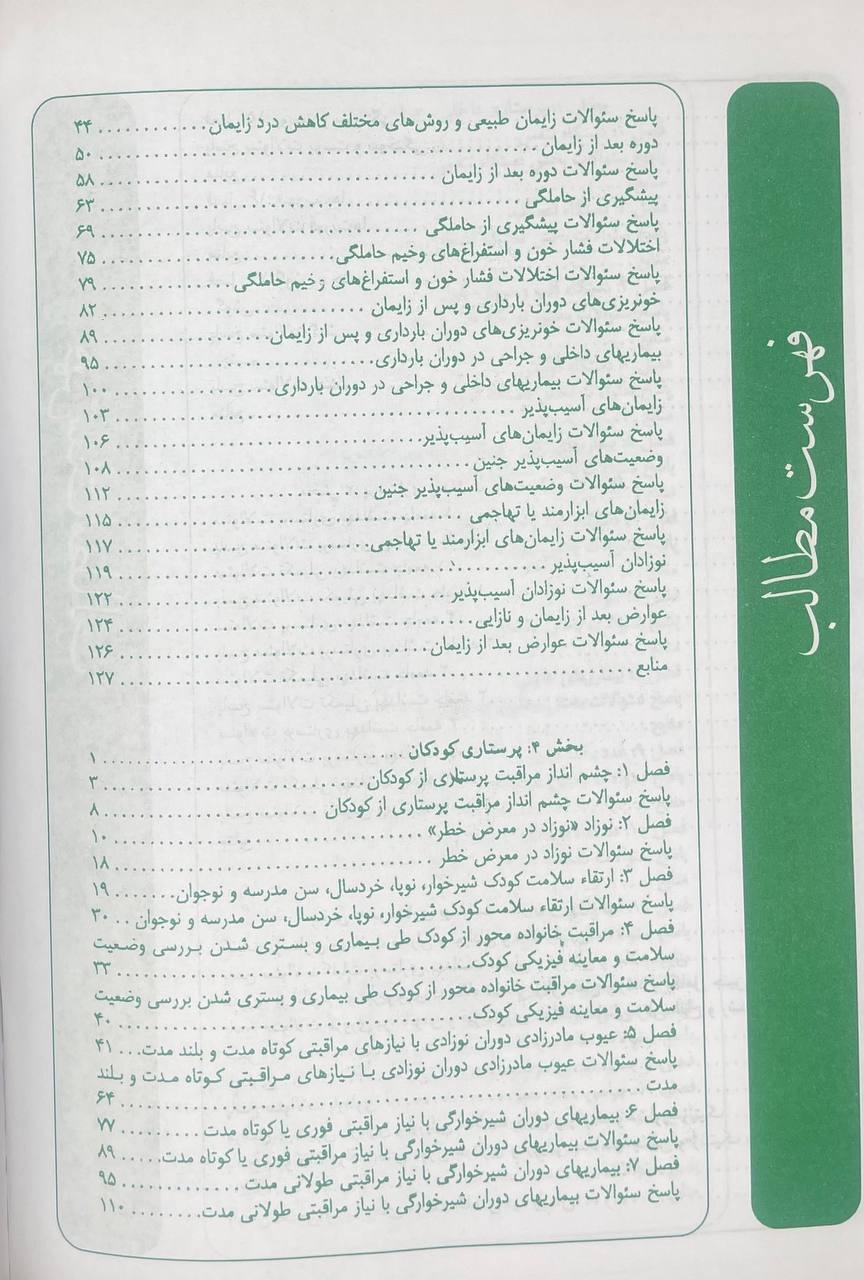 فهرست مطالب
پاسخ سئوالات زایمان طبیعی و روش‌های مختلف کاهش درد زایمان............ ۴۴
دوره بعد از زایمان............ ۵۰
پاسخ سئوالات دوره بعد از زایمان ............ ۵۸
پیشگیری از حاملگی ............ ۶۳
پاسخ سئوالات پیشگیری از حاملگی ............ ۶۹
اختلالات فشار خون و استفراغ‌های وخیم حاملگی............ ۷۵
پاسخ سئوالات اختلالات فشار خون و استفراغ‌های وخیم حاملگی............ ۷۹
خونریزی‌های دوران بارداری و پس از زایمان ............ ۸۲
پاسخ سئوالات خونریزی‌های دوران بارداری و پس از زایمان............ ۸۹
بیماریهای داخلی و جراحی در دوران بارداری............ ۹۵
پاسخ سئوالات بیماریهای داخلی و جراحی در دوران بارداری............ ۱۰۰
زایمان‌های آسیب‌پذیر ............ ۱۰۳
پاسخ سئوالات زایمان‌های آسیب‌پذیر............ ۱۰۶
وضعیت‌های آسیب‌پذیر جنین............ ۱۰۸
پاسخ سئوالات وضعیت‌های آسیب‌پذیر جنین ............ ۱۱۲
زایمان‌های ابزارمند یا تهاجمی ............ ۱۱۵
پاسخ سئوالات زایمان‌های ابزارمند یا تهاجمی............ ۱۱۷
نوزادان آسیب‌پذیر ............ ۱۱۹
پاسخ سئوالات نوزادان آسیب‌پذیر ............ ۱۲۲
عوارض بعد از زایمان و نازایی............ ۱۲۴
پاسخ سئوالات عوارض بعد از زایمان............ ۱۲۶
منابع ............ ۱۲۷
بخش ۴: پرستاری کودکان ............ ۱
فصل ۱: چشم انداز مراقبت پرستاری از کودکان............ ۳
پاسخ سئوالات چشم انداز مراقبت پرستاری از کودکان ............ ۸
فصل ۲: نوزاد «نوزاد در معرض خطر» ............ ۱۰
پاسخ سئوالات نوزاد در معرض خطر ............ ۱۸
فصل ۳: ارتقاء سلامت کودک شیرخوار، نوپا، خردسال، سن مدرسه و نوجوان....... ۱۹
پاسخ سئوالات ارتقاء سلامت کودک شیرخوار، نوپا، خردسال، سن مدرسه و نوجوان .. ۳۰
فصل ۴: مراقبت خانواده محور از کودک طی بیماری و بستری شدن بررسی وضعیت
سلامت و معاینه فیزیکی کودک............ ۳۳
پاسخ سئوالات مراقبت خانواده محور از کودک طی بیماری و بستری شدن بررسی وضعیت
سلامت و معاینه فیزیکی کودک............ ۴۰
فصل ۵: عیوب مادرزادی دوران نوزادی با نیازهای مراقبتی کوتاه مدت و بلند مدت... ۴۱
پاسخ سئوالات عیوب مادرزادی دوران نوزادی با نیازهای مراقبتی کوتاه مدت و بلند
مدت ............ ۶۴
فصل ۶: بیماریهای دوران شیرخوارگی با نیاز مراقبتی فوری یا کوتاه مدت ......... ۷۷
پاسخ سئوالات بیماریهای دوران شیرخوارگی با نیاز مراقبتی فوری یا کوتاه مدت..... ۸۹
فصل ۷: بیماریهای دوران شیرخوارگی با نیاز مراقبتی طولانی مدت ............ ۹۵
پاسخ سئوالات بیماریهای دوران شیرخوارگی با نیاز مراقبتی طولانی مدت......... ۱۱۰